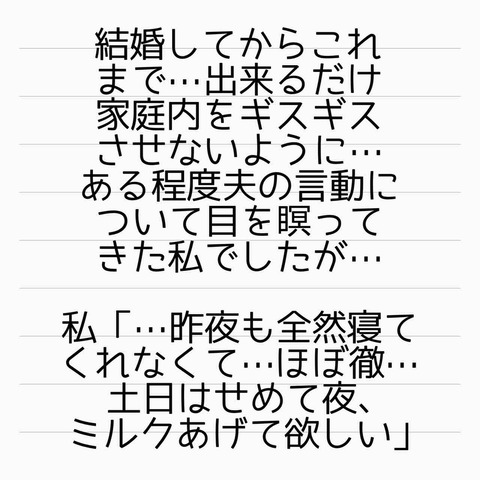 結婚してからこれ
まで…出来るだけ
家庭内をギスギス
させないように…
ある程度夫の言動に
ついて目を瞑って
きた私でしたが…
私「…昨夜も全然寝て
くれなくて…ほぼ徹…
土日はせめて夜、
ミルクあげて欲しい」